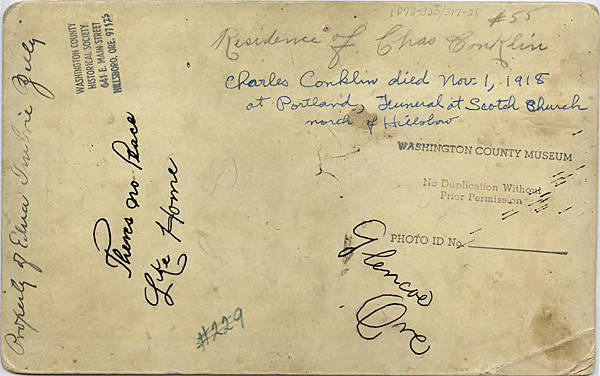 #55
Residence of Chas Conklin
Charles Conklin died Nov. 1, 1918
at Portland, Funeral at Scotch Church
north of Hillsboro
WASHINGTON COUNTY MUSEUM
No Duplication Without
Prior Permission
PHOTO ID No.
Glencoe
Ore
WASHINGTON COUNTY
HISTORICAL SOCIETY
641 E. MAIN STREET
HILLSBORO, ORE. 97123
Theres no Place
Like Home
#229
Property of Edna Imbrie